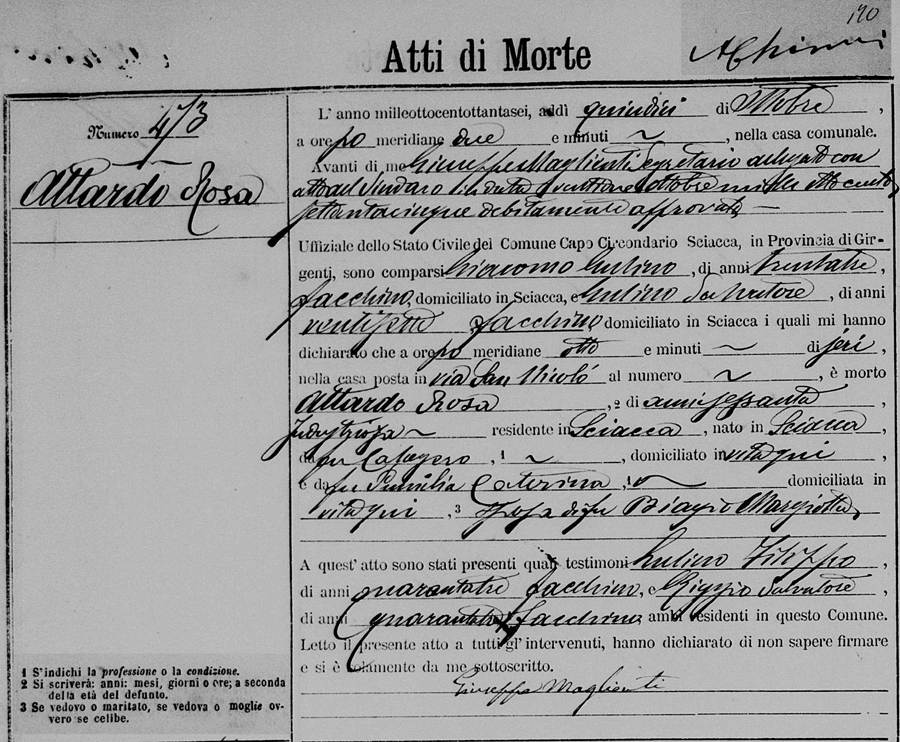 190
Atti di Morte
Numero 473
Attardo Rosa
L' anno milleottocentottantasei, addì quindici di Ottobre,
a ore po meridiane due e minuti ~, nella casa comunale.
Avanti di me Giuseppe Maglienti Segretario delegato con
atto del Sindaco ventinove ottobre mille otto cento
settantacinque debitamente approvato —
Uffiziale dello Stato Civile del Comune Capo Circondario Sciacca, in Provincia di Gir-
genti, sono comparsi Giacomo Gulino, di anni trentatre,
facchino, domiciliato in Sciacca, e Gulino Salvatore, di anni
ventisette facchino domiciliato in Sciacca i quali mi hanno
dichiarato che a ore po meridiane otto e minuti ~ di jeri,
nella casa posta in via San Nicoló al numero ~, è morto
Attardo Rosa, 2 di anni sessanta,
Industriosa ~ residente in Sciacca, nato in Sciacca,
da fu Calogero, 1 ~, domiciliato in vita qui,
e da fu Caterina, 1 ~ domiciliata in
vita qui, 3 sposa di fu Biagio Margiotta,
A quest' atto sono stati presenti quali testimoni Gulino Filippo,
di anni quarantatre facchino, e Salvatore,
di anni quarantatre facchino ambi residenti in questo Comune.
Letto il presente atto a tutti gl' intervenuti, hanno dichiarato di non sapere firmare
e si è solamente da me sottoscritto.
Giuseppe Maglienti
1 S'indichi la professione o la condizione.
2 Si scriverà: anni: mesi, giorni o ore; a seconda
della età del defunto.
3 Se vedovo o maritato, se vedova o moglie ov-
vero se celibe.